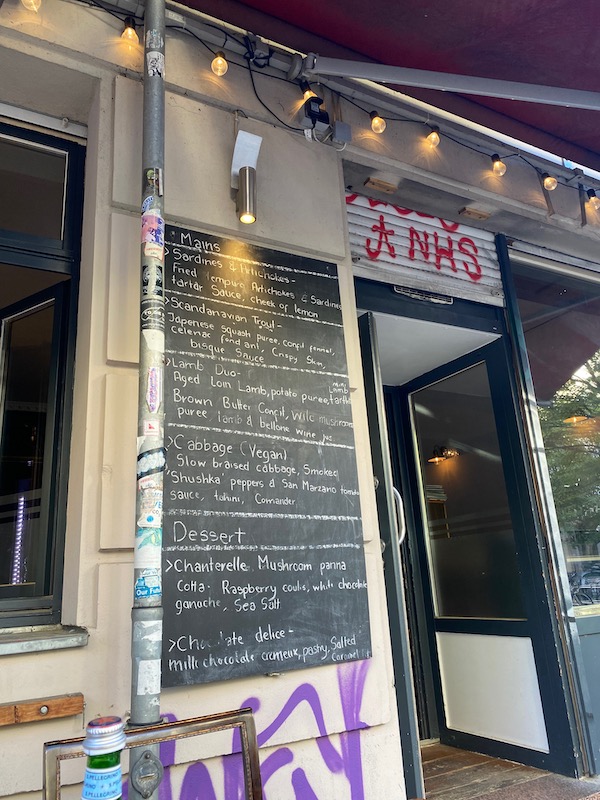 Mains
>Sardines & Artichokes-
Fried Tempura Artichokes & Sardines
tartar Sauce, cheek of lemon
>Scandanavian Trout-
Japenese squash puree, confit fennel,
celeriac fondant, Crispy Skin,
bisque Sauce
>Lamb Duo-
Aged Loin Lamb, potato puree, mini Lamb
Brown Butter Confit, Wild mushroom
puree, lamb & wine jus
>Cabbage (Vegan)
Slow braised cabbage, Smoked
"Shushka" peppers & San Marzano tomato
sauce, tahini, Coriander
Dessert
>Chanterelle Mushroom panna
Cotta- Raspberry coulis, white chocolate
ganache, Sea Salt
>Chocolate delice-
milk chocolate cremeux, pastry, Salted
Caramel
NHS
Our Futu
S.PELLEGRINO